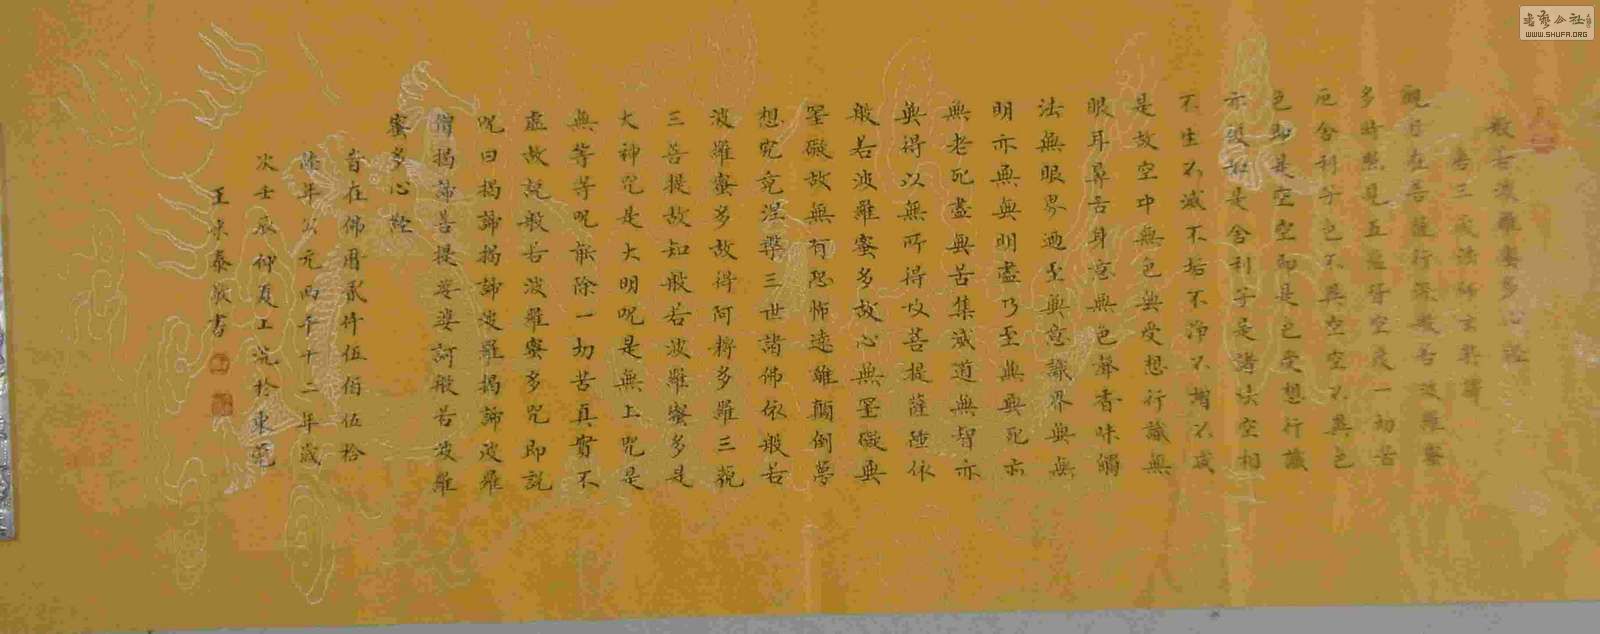 般若波羅蜜多心經
唐三藏法師玄奘譯
觀自在菩薩行深般若波羅蜜
多時照見五蘊皆空度一切苦
厄舍利子色不異空空不異色
色即是空空即是色受想行識
亦復如是舍利子是諸法空相
不生不滅不垢不淨不增不減
是故空中無色無受想行識無
眼耳鼻舌身意無色聲香味觸
法無眼界迺至無意識界無無
明亦無無明盡乃至無無死亦
無老死盡無苦集滅道無智亦
無得以無所得故菩提薩埵依
般若波羅蜜多故心無罣礙無
罣礙故無有恐怖遠離顛倒夢
想究竟涅槃三世諸佛依般若
波羅蜜多故得阿耨多羅三藐
三菩提故知般若波羅蜜多是
大神咒是大明呪是無上咒是
無等等呪能除一切苦真實不
虛故說般若波羅蜜多咒即說
呪曰揭諦揭諦波羅揭諦波羅
僧揭諦菩提娑婆訶般若波羅
蜜多心經
旨在佛曆貳仟伍佰伍拾
陸年公元兩千十二年歲
次壬辰仰夏上浣於東莞
王東泰敬書
書藝公社
WWW.SHUFA.ORG